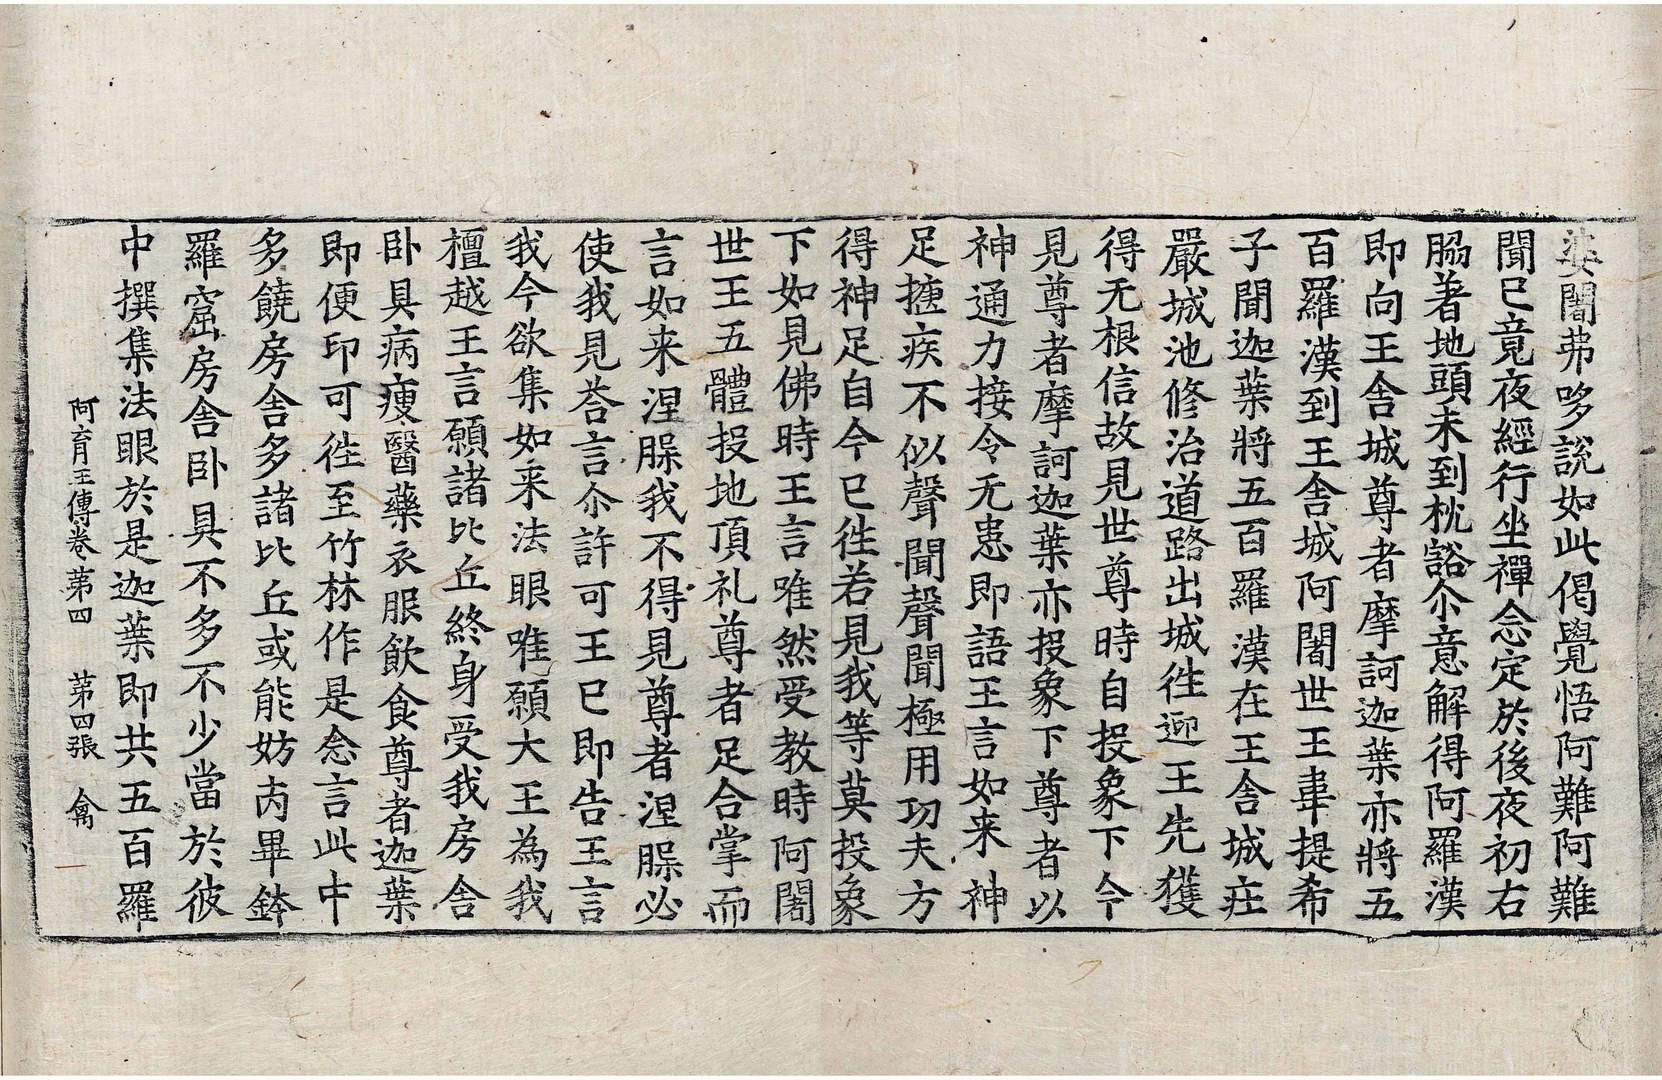 婆闍弗哆說如此偈覺悟阿難阿難
聞已竟夜經行坐禪念定於後夜初右
脇著地頭未到枕豁尒意解得阿羅漢
即向王舍城尊者摩訶迦葉亦將五
百羅漢到王舍城阿闍世王韋提希
子聞迦葉將五百羅漢在王舍城庄
嚴城池修治道路出城徃迎王先獲
得无根信故見世尊時自投象下今
見尊者摩訶迦葉亦投象下尊者以
神通力接令无患即語王言如来神
足㨗疾不似聲聞聲聞極用功夫方
得神足自今已徃若見我等莫投象
下如見佛時王言唯然受教時阿闍
世王五體投地頂礼尊者足合掌而
言如来涅槃我不得見尊者涅槃必
使我見荅言尒許可王已即告王言
我今欲集如来法眼唯願大王為我
檀越王言願諸比丘終身受我房舍
卧具病瘦醫藥衣服飲食尊者迦葉
即便印可徃至竹林作是念言此中
多饒房舍多諸比丘或能妨丙畢鉢
羅窟房舍卧具不多不少當於彼
中撰集法眼於是迦葉即共五百羅
阿育王傳卷第四 第四張 禽